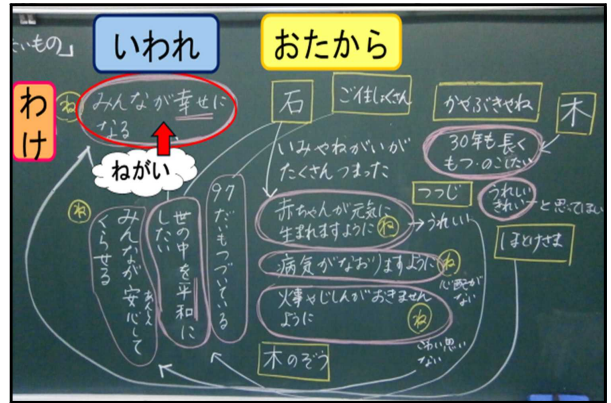 たいもの」
いわれ
おたから
わけ
ね
みんなが幸せに
なる
ねがい
石
ご住しょくさん
かやぶきやね
木
いみやねがいが
たくさんつまった
30年も長く
もつ・のこしたい
つつじ
うれしい
きれい
と思ってほしい
ほとけさま
赤ちゃんが元気に
生まれますように
ね
→うれしい
病気がなおりますように
ね
心配が
ない
火事やじしんがおきません
ように
ね
こわい思い
ない
木のぞう
97
だいもつづいている
世の中を平和に
したい
ね
みんなが安心して
あんしん
くらせる